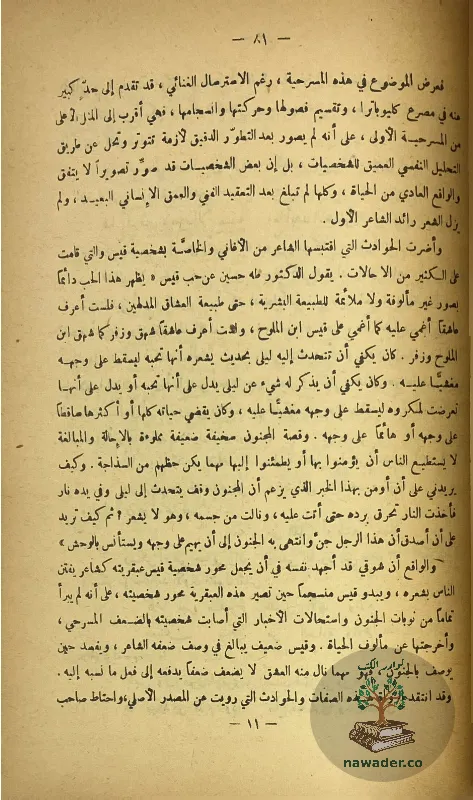 — ٨١ —
فعرض الموضوع في هذه المسرحية ، رغم الاسترصال الغنائي ، قد تقدم إلى حدّ كبير
عنه في مصرع كليوباترا ، وتقسيم فصولها وحركتها وانسجامها ، فهي أقرب إلى المثل الأعلى
من المسرحية الأولى ، على أنه لم يصور بعد التطوّر الدقيق لأزمة تتوتر وتحل عن طريق
التحليل النفسي العميق للشخصيات ، بل إن بعض الشخصيات قد صوّر تصويراً لا يتفق
والواقع العادي من الحياة ، وكلها لم تبلغ بعد التعقيد الفني والعمق الإنساني البعيد ، ولم
يزل الشعر رائد الشاعر الأول .
وأضرت الحوادث التي اقتبسها الشاعر من الأغاني والخاصّة بشخصية قيس والتي قامت
على الكثير من الاحالات . يقول الدكتور طه حسين عن حب قيس « يظهر هذا الحب دائماً
بصور غير مألوفة ولا ملائمة للطبيعة البشرية ، حتى طبيعة العشاق المدلهين ، فلست أعرف
عاشقاً أغمي عليه كما أغمي على قيس ابن الملوح ، ولست أعرف عاشقاً شهق وزفر كما شهق ابن
الملوح وزفر . كان يكفي أن تتحدث إليه ليلى بحديث يشعره أنها تحبه ليسقط على وجهه
مغشيّاً عليه . وكان يكفي أن يذكر له شيء عن ليلى يدل على أنها تحبه أو يدل على أنها
تعرضت لمكروه ليسقط على وجهه مغشيّاً عليه ، وكان يقضي حياته كلها أو أكثرها صاقطاً
على وجهه أو هائماً على وجهه . وقصة المجنون سخيفة ضعيفة مملوءة بالإحالة والمبالغة
لا يستطيع الناس أن يؤمنوا بها أو يطمئنوا إليها مهما يكن حظهم من السذاجة . وكيف
يريدني على أن أومن بهذا الخبر الذي يزعم أن المجنون وقف يتحدث إلى ليلى وفي يده نار
فأخذت النار تحرق برده حتى أتت عليه ، ونالت من جسمه ، وهو لا يشعر ؟ ثم كيف تريد
على أن أصدق أن هذا الرجل جنّ وانتهى به الجنون إلى أن يهيم على وجهه ويستأنس بالوحش »
والواقع أن شوقي قد أجهد نفسه في أن يجعل محور شخصية قيس عبقريته كشاعر يفتن
الناس بشعره ، ويبدو قيس منسجماً حين تصير هذه العبقرية محور شخصيته ، على أنه لم يبرأ
تماماً من نوبات الجنون واستحالات الأخبار التي أصابت شخصيته بالضعف المسرحي ،
وأخرجتها عن مألوف الحياة . وقيس ضعيف يبالغ في وصف ضعفه الشاعر ، ويفسد حين
يوصف بالجنون ، فهو مهما نال منه العشق لا يضعف ضعفاً يدفعه إلى فعل ما نسبه إليه .
وقد انتقد هذه الصفات والحوادث التي رويت عن المصدر الأصلي، واحتاط صاحب
— ١١ —
نوادر الكتب
nawader.co